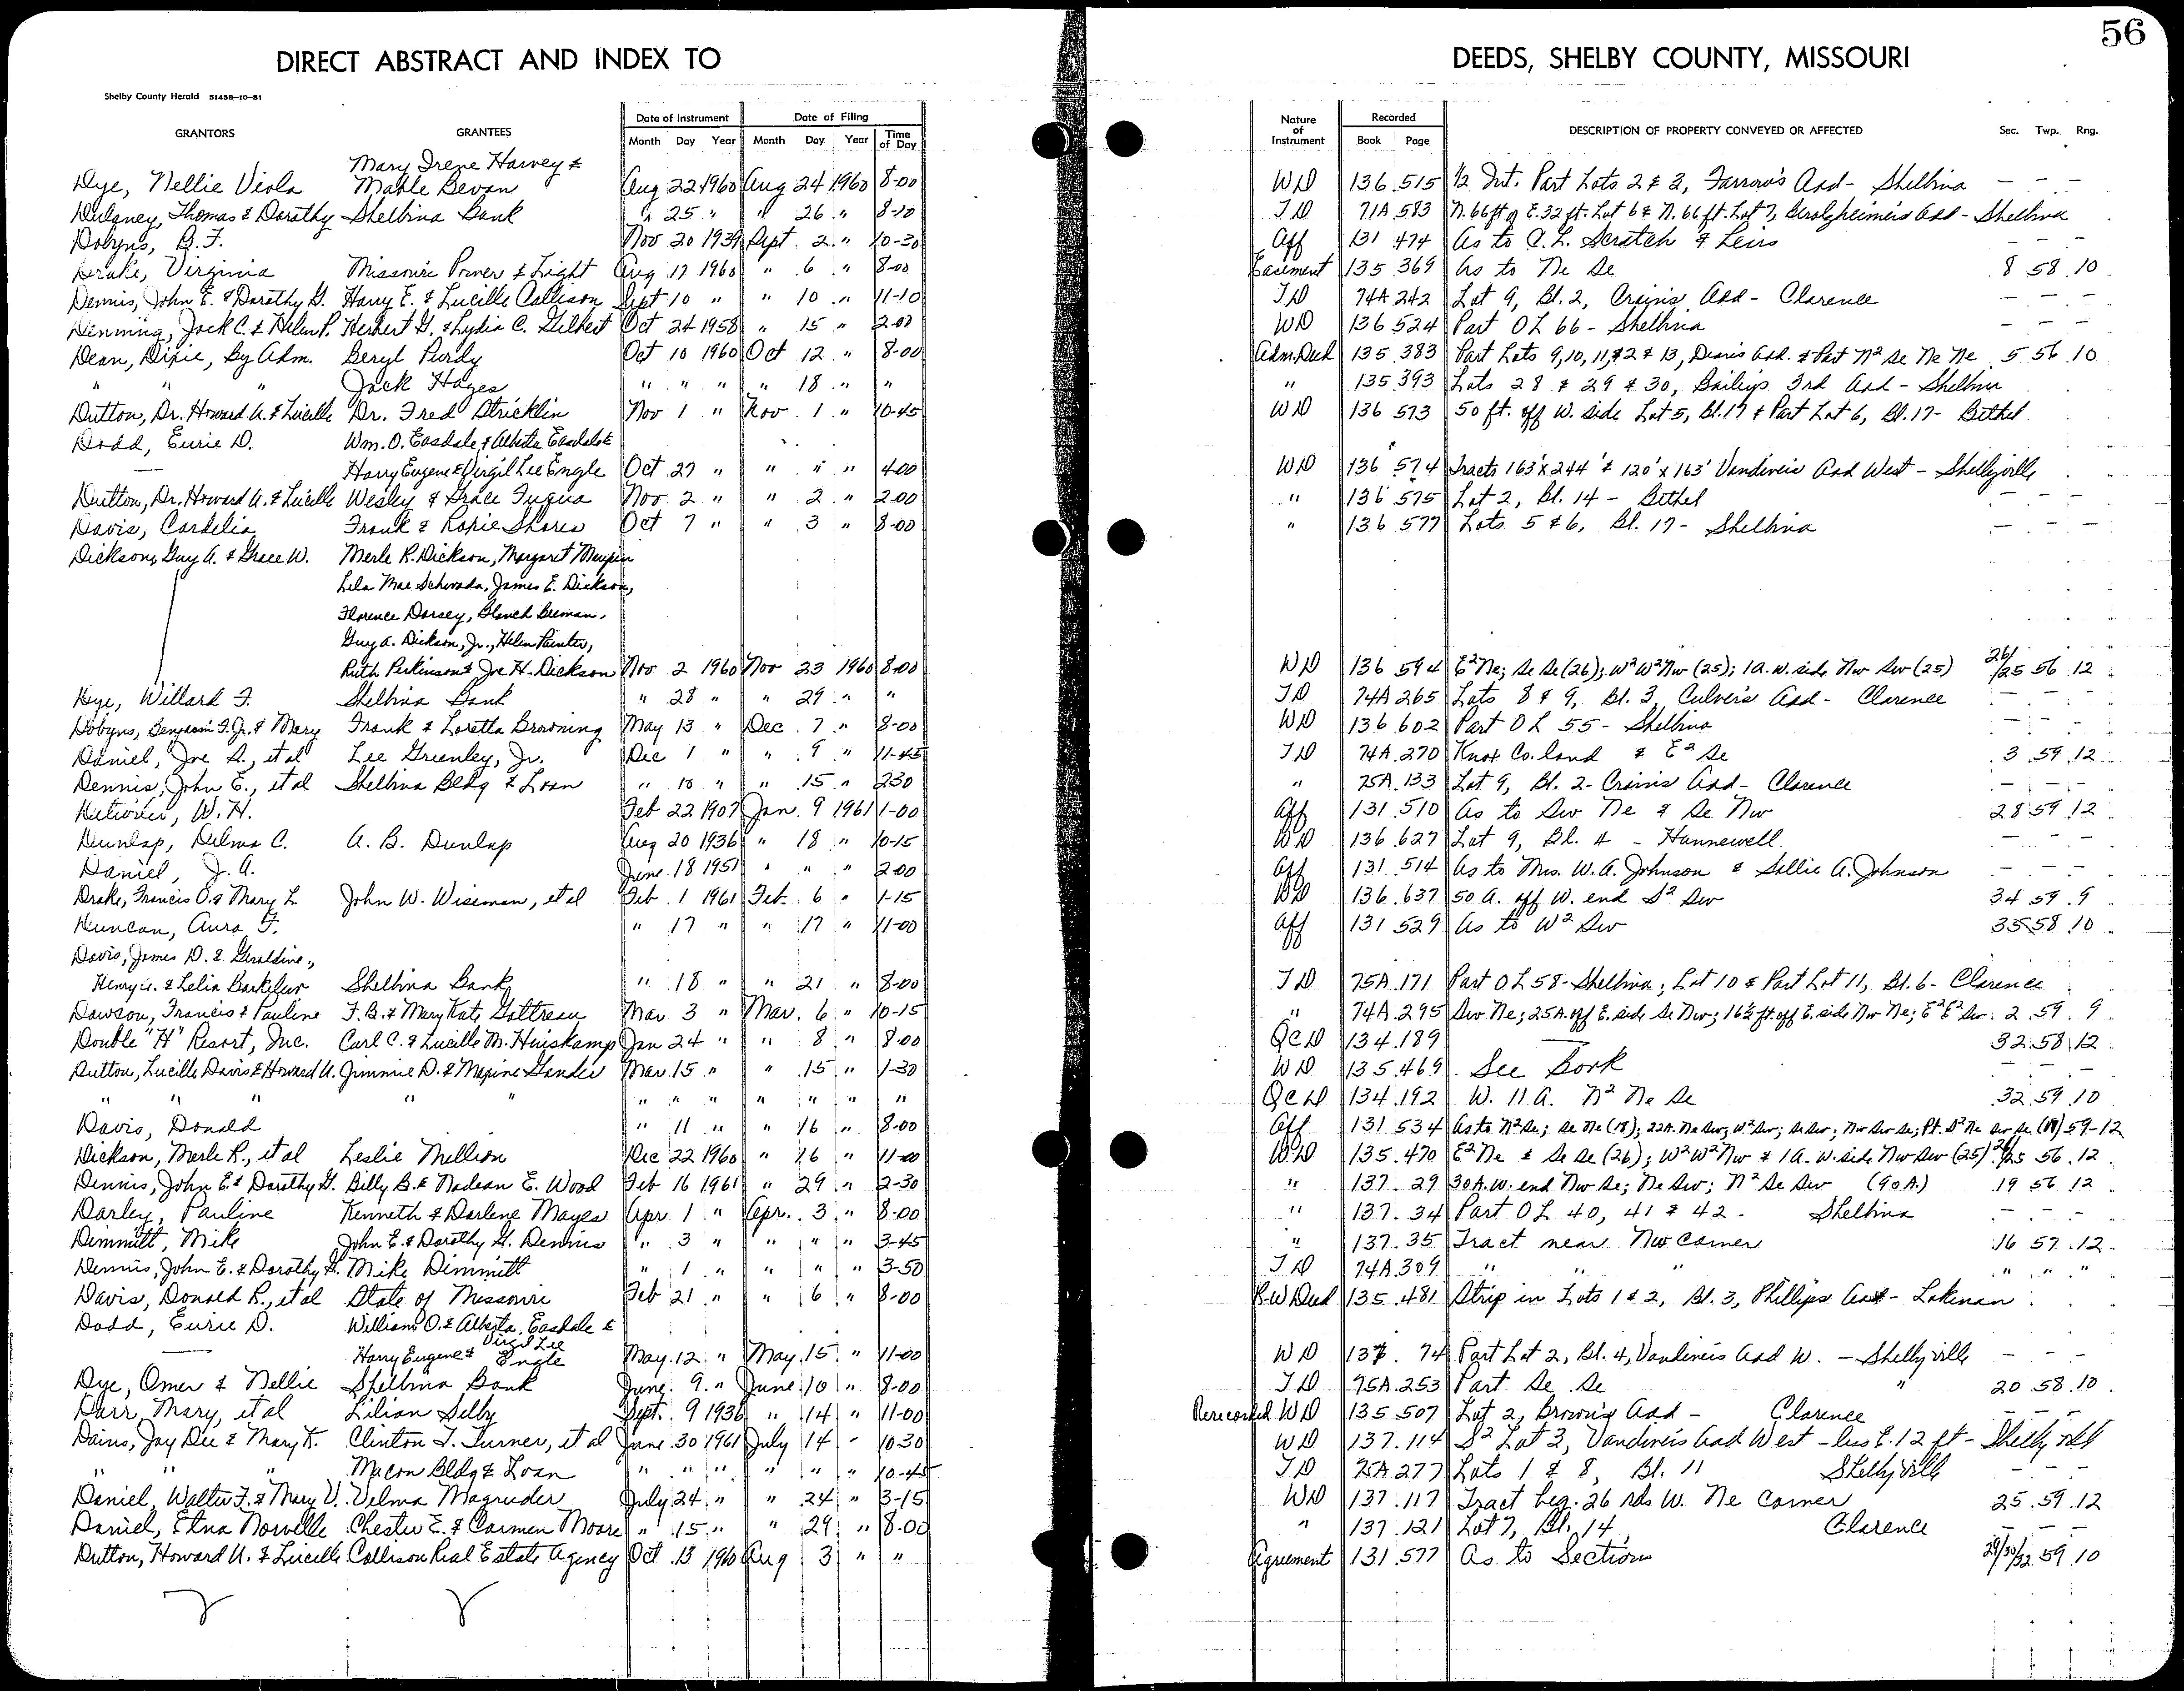 56
DIRECT ABSTRACT AND INDEX TO DEEDS, SHELBY COUNTY, MISSOURI
Shelby County Herald 51458-10-51
GRANTORS GRANTEES Date of Instrument Month Day Year Date of Filing Month Day Year Time of Day Nature of Instrument Recorded Book Page DESCRIPTION OF PROPERTY CONVEYED OR AFFECTED Sec. Twp. Rng.
Mary Irene Harvey &
Dye, Nellie Viola Mable Bevan Aug 22 1960 Aug 24 1960 8-00 WD 136 515 1/2 Int. Part Lots 2 & 3, Farrow's Add - Shelbina — — —
Dulaney, Thomas & Dorothy Shelbina Bank " 25 " " 26 " 8-10 TD 71A 583 N. 66 ft of E. 32 ft. Lot 6 & N. 66 ft. Lot 7, Gerolzheimer's Add - Shelbina
Dobyns, B. F. Nov 20 1939 Sept 2 " 10-30 Aff 131 474 As to C. L. Scratch & Leirs — — —
Drake, Virginia Missouri Power & Light Aug 17 1960 " 6 " 8-00 Easement 135 369 As to Ne Se 8 58 10
Dennis, John E. & Dorothy G. Harry E. & Lucille Collison Sept 10 " " 10 " 11-10 TD 74A 242 Lot 9, Bl. 2, Crain's Add - Clarence — — —
Denning, Jack C. & Helen P. Herbert G. & Lydia C. Gilbert Oct 24 1958 " 15 " 2-00 WD 136 524 Part OL 66 - Shelbina — — —
Dean, Dixie, By Adm. Beryl Purdy Oct 10 1960 Oct 12 " 8-00 Adm. Deed 135 383 Part Lots 9, 10, 11, 12 & 13, Dean's Add. & Part N² Se Ne Ne 5 56 10
" " " Jack Hayes " " " " 18 " " " 135 393 Lots 28 & 29 & 30, Bailey's 3rd Add - Shelbina
Dutton, Dr. Howard A. & Lucille Dr. Fred Stricklin Nov 1 " Nov 1 " 10-45 WD 136 573 50 ft. off W. side Lot 5, Bl. 17 & Part Lot 6, Bl. 17 - Bethel
Dodd, Eurie D. Wm. O. Easdale & Alberta Easdale &
— Harry Eugene & Virgil Lee Engle Oct 27 " " " " 4-00 WD 136 574 Tracts 163' x 244' & 120' x 163' Vandiver's Add West - Shelbyville
Dutton, Dr. Howard A. & Lucille Wesley & Grace Fuqua Nov. 2 " " 2 " 2-00 " 136 575 Lot 2, Bl. 14 - Bethel — — —
Davis, Cordelia Frank & Roxie Shores Oct 7 " " 3 " 8-00 " 136 577 Lots 5 & 6, Bl. 17 - Shelbina — — —
Dickson, Guy A. & Grace W. Merle R. Dickson, Margaret Maupin
Lela Mae Schwada, James E. Dickson,
Florence Dorsey, Blanch Beeman,
Guy A. Dickson, Jr., Helen Painter,
Ruth Perkinson & Joe H. Dickson Nov 2 1960 Nov 23 1960 8-00 WD 136 594 E² Ne; Se Se (26); W² W² Nw (25); 1A. W. side Nw Sw (25) 26/25 56 12
Dye, Willard F. Shelbina Bank " 28 " " 29 " " TD 74A 265 Lots 8 & 9, Bl. 3, Culver's Add - Clarence — — —
Dobyns, Benjamin F. Jr. & Mary Frank & Loretta Browning May 13 " Dec 7 " 8-00 WD 136 602 Part OL 55 - Shelbina — — —
Daniel, Joe A., et al Lee Greenley, Jr. Dec 1 " " 9 " 11-45 TD 74A 270 Knox Co. land & E² Se 3 59 12
Dennis, John E., et al Shelbina Bldg & Loan " 10 " " 15 " 2-30 " 75A 133 Lot 9, Bl. 2 - Crain's Add - Clarence — — —
W. H. Feb 22 1907 Jan. 9 1961 1-00 Aff 131 510 As to Sw Ne & Se Nw 28 59 12
Dunlap, Delma C. A. B. Dunlap Aug 20 1936 " 18 " 10-15 WD 136 627 Lot 9, Bl. 4 - Hunnewell — — —
Daniel, J. A. June 18 1951 " " " 2-00 Aff 131 514 As to Mrs. W. A. Johnson & Sallie A. Johnson — — —
Drake, Francis O. & Mary L. John W. Wiseman, et al Feb. 1 1961 Feb. 6 " 1-15 WD 136 637 50 A. off W. end S² Sw 34 59 9
Duncan, Aura F. " 17 " " 17 " 11-00 Aff 131 529 As to W² Sw 35 58 10
Davis, James D. & Geraldine,
Henry A. & Lelia Barkelew Shelbina Bank " 18 " " 21 " 8-00 TD 75A 171 Part OL 58 - Shelbina; Lot 10 & Part Lot 11, Bl. 6 - Clarence
Dawson, Francis & Pauline F. B. & Mary Kate Gottreau Mar. 3 " Mar. 6 " 10-15 " 74A 295 Sw Ne; 25A. off E. side Se Nw; 16½ ft. off E. side Nw Ne; E² E² Sw 2 59 9
Double "H" Resort, Inc. Carl C. & Lucille M. Huiskamp Jan 24 " " 8 " 8-00 QCD 134 189 — 32 58 12
Dutton, Lucille Davis & Howard A. Jimmie D. & Maxine Gander Mar. 15 " " 15 " 1-30 WD 135 469 See Book — — —
" " " " " " " " " " " " QCD 134 192 W. 11 A. N² Ne Se 32 59 10
Davis, Donald " 11 " " 16 " 8-00 Aff 131 534 As to N² Se; Se Ne (18); 22A. Ne Sw; W² Sw; Se Sw; Nw Sw Se; Pt. S² Ne Sw Se (18) 59-12
Dickson, Merle R., et al Leslie Million Dec 22 1960 " 16 " 11-00 WD 135 470 E² Ne & Se Se (26); W² W² Nw & 1A. W. side Nw Sw (25) 26/25 56 12
Dennis, John E. & Dorothy G. Billy B. & Nadean E. Wood Feb 16 1961 " 29 " 2-30 " 137 29 30 A. W. end Nw Se; Ne Sw; N² Se Sw (90A.) 19 56 12
Darley, Pauline Kenneth & Darlene Mayes Apr 1 " Apr. 3 " 8-00 " 137 34 Part OL 40, 41 & 42 - Shelbina — — —
Dimmitt, Mike John E. & Dorothy G. Dennis " 3 " " " " 3-45 " 137 35 Tract near Nw Corner 16 57 12
Dennis, John E. & Dorothy G. Mike Dimmitt " 1 " " " " 3-50 TD 74A 309 " " " " " "
Davis, Donald R., et al State of Missouri Feb 21 " " 6 " 8-00 R.W Deed 135 481 Strip in Lots 1 & 2, Bl. 3, Phillips Add - Lakenan
Dodd, Eurie D. William O. & Alberta Easdale &
— Harry Eugene & Virgil Lee Engle May 12 " May 15 " 11-00 WD 137 74 Part Lot 2, Bl. 4, Vandiver's Add W. - Shelbyville — — —
Dye, Omer & Nellie Shelbina Bank June 9 " June 10 " 8-00 TD 75A 253 Part Se Se " 20 58 10
Darr, Mary, et al Lilian Selby Sept. 9 1936 " 14 " 11-00 Rerecorded WD 135 507 Lot 2, Brown's Add - Clarence — — —
Dains, Jay Dee & Mary K. Clinton T. Turner, et al June 30 1961 July 14 " 10-30 WD 137 114 S² Lot 3, Vandiver's Add West - less E. 12 ft - Shelbyville
" " " Macon Bldg & Loan " " " " " " 10-45 TD 75A 277 Lots 1 & 8, Bl. 11 Shelbyville — — —
Daniel, Walter F. & Mary V. Velma Magruder July 24 " " 24 " 3-15 WD 137 117 Tract beg. 26 rds W. Ne Corner 25 59 12
Daniel, Etna Norvelle Chester E. & Carmen Moore " 15 " " 29 " 8-00 " 137 121 Lot 7, Bl. 14 Clarence — — —
Dutton, Howard A. & Lucille Collison Real Estate Agency Oct 13 1960 Aug 3 " " Agreement 131 577 As to Sections 29/30/32 59 10